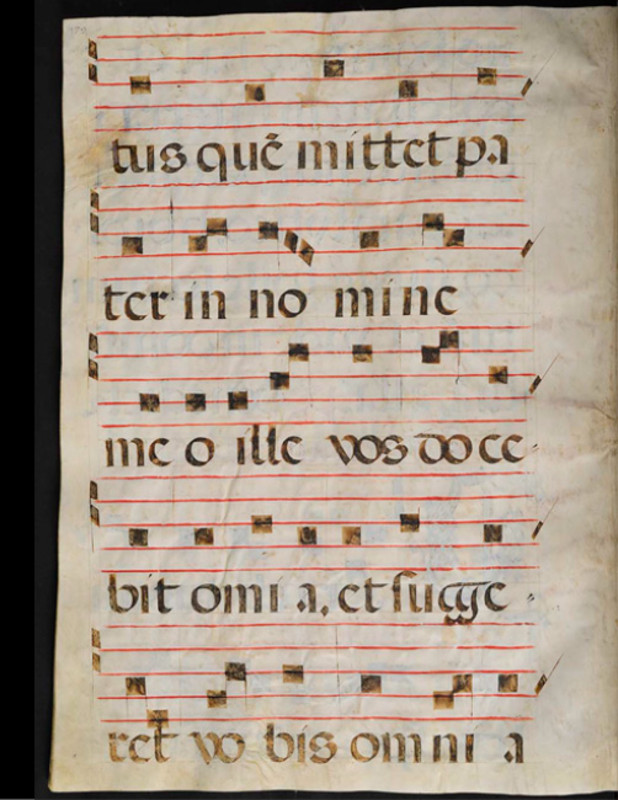 tus quē mittet pa
ter in no mine
me o ille vos doce
bit omni a, et sugge
ret vo bis omni a